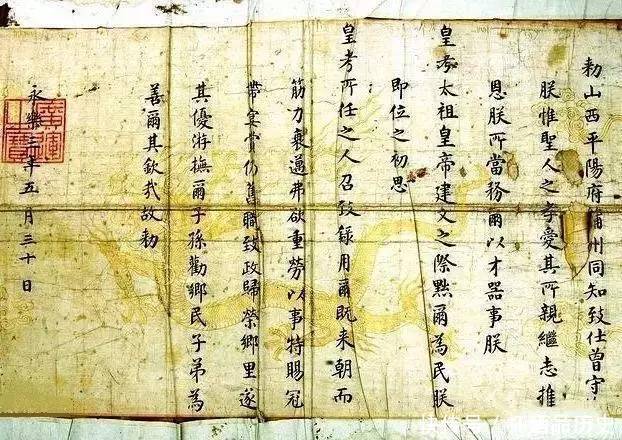 勑山西平陽府蒲州同知致仕曾守
朕惟聖人之孝愛其所親繼志推
恩朕所當務爾以才器事朕
皇考太祖皇帝建文之際黜爾為民朕
即位之初思
皇考所任之人召致録用爾既来朝而
筋力衰邁弗欲重勞以事特賜冠
帶宴賞仍舊職致政歸榮鄉里遂
其優游撫爾子孫勸鄉民子弟為
善爾其欽哉故勑
永樂三年五月三十日
廣運之寶